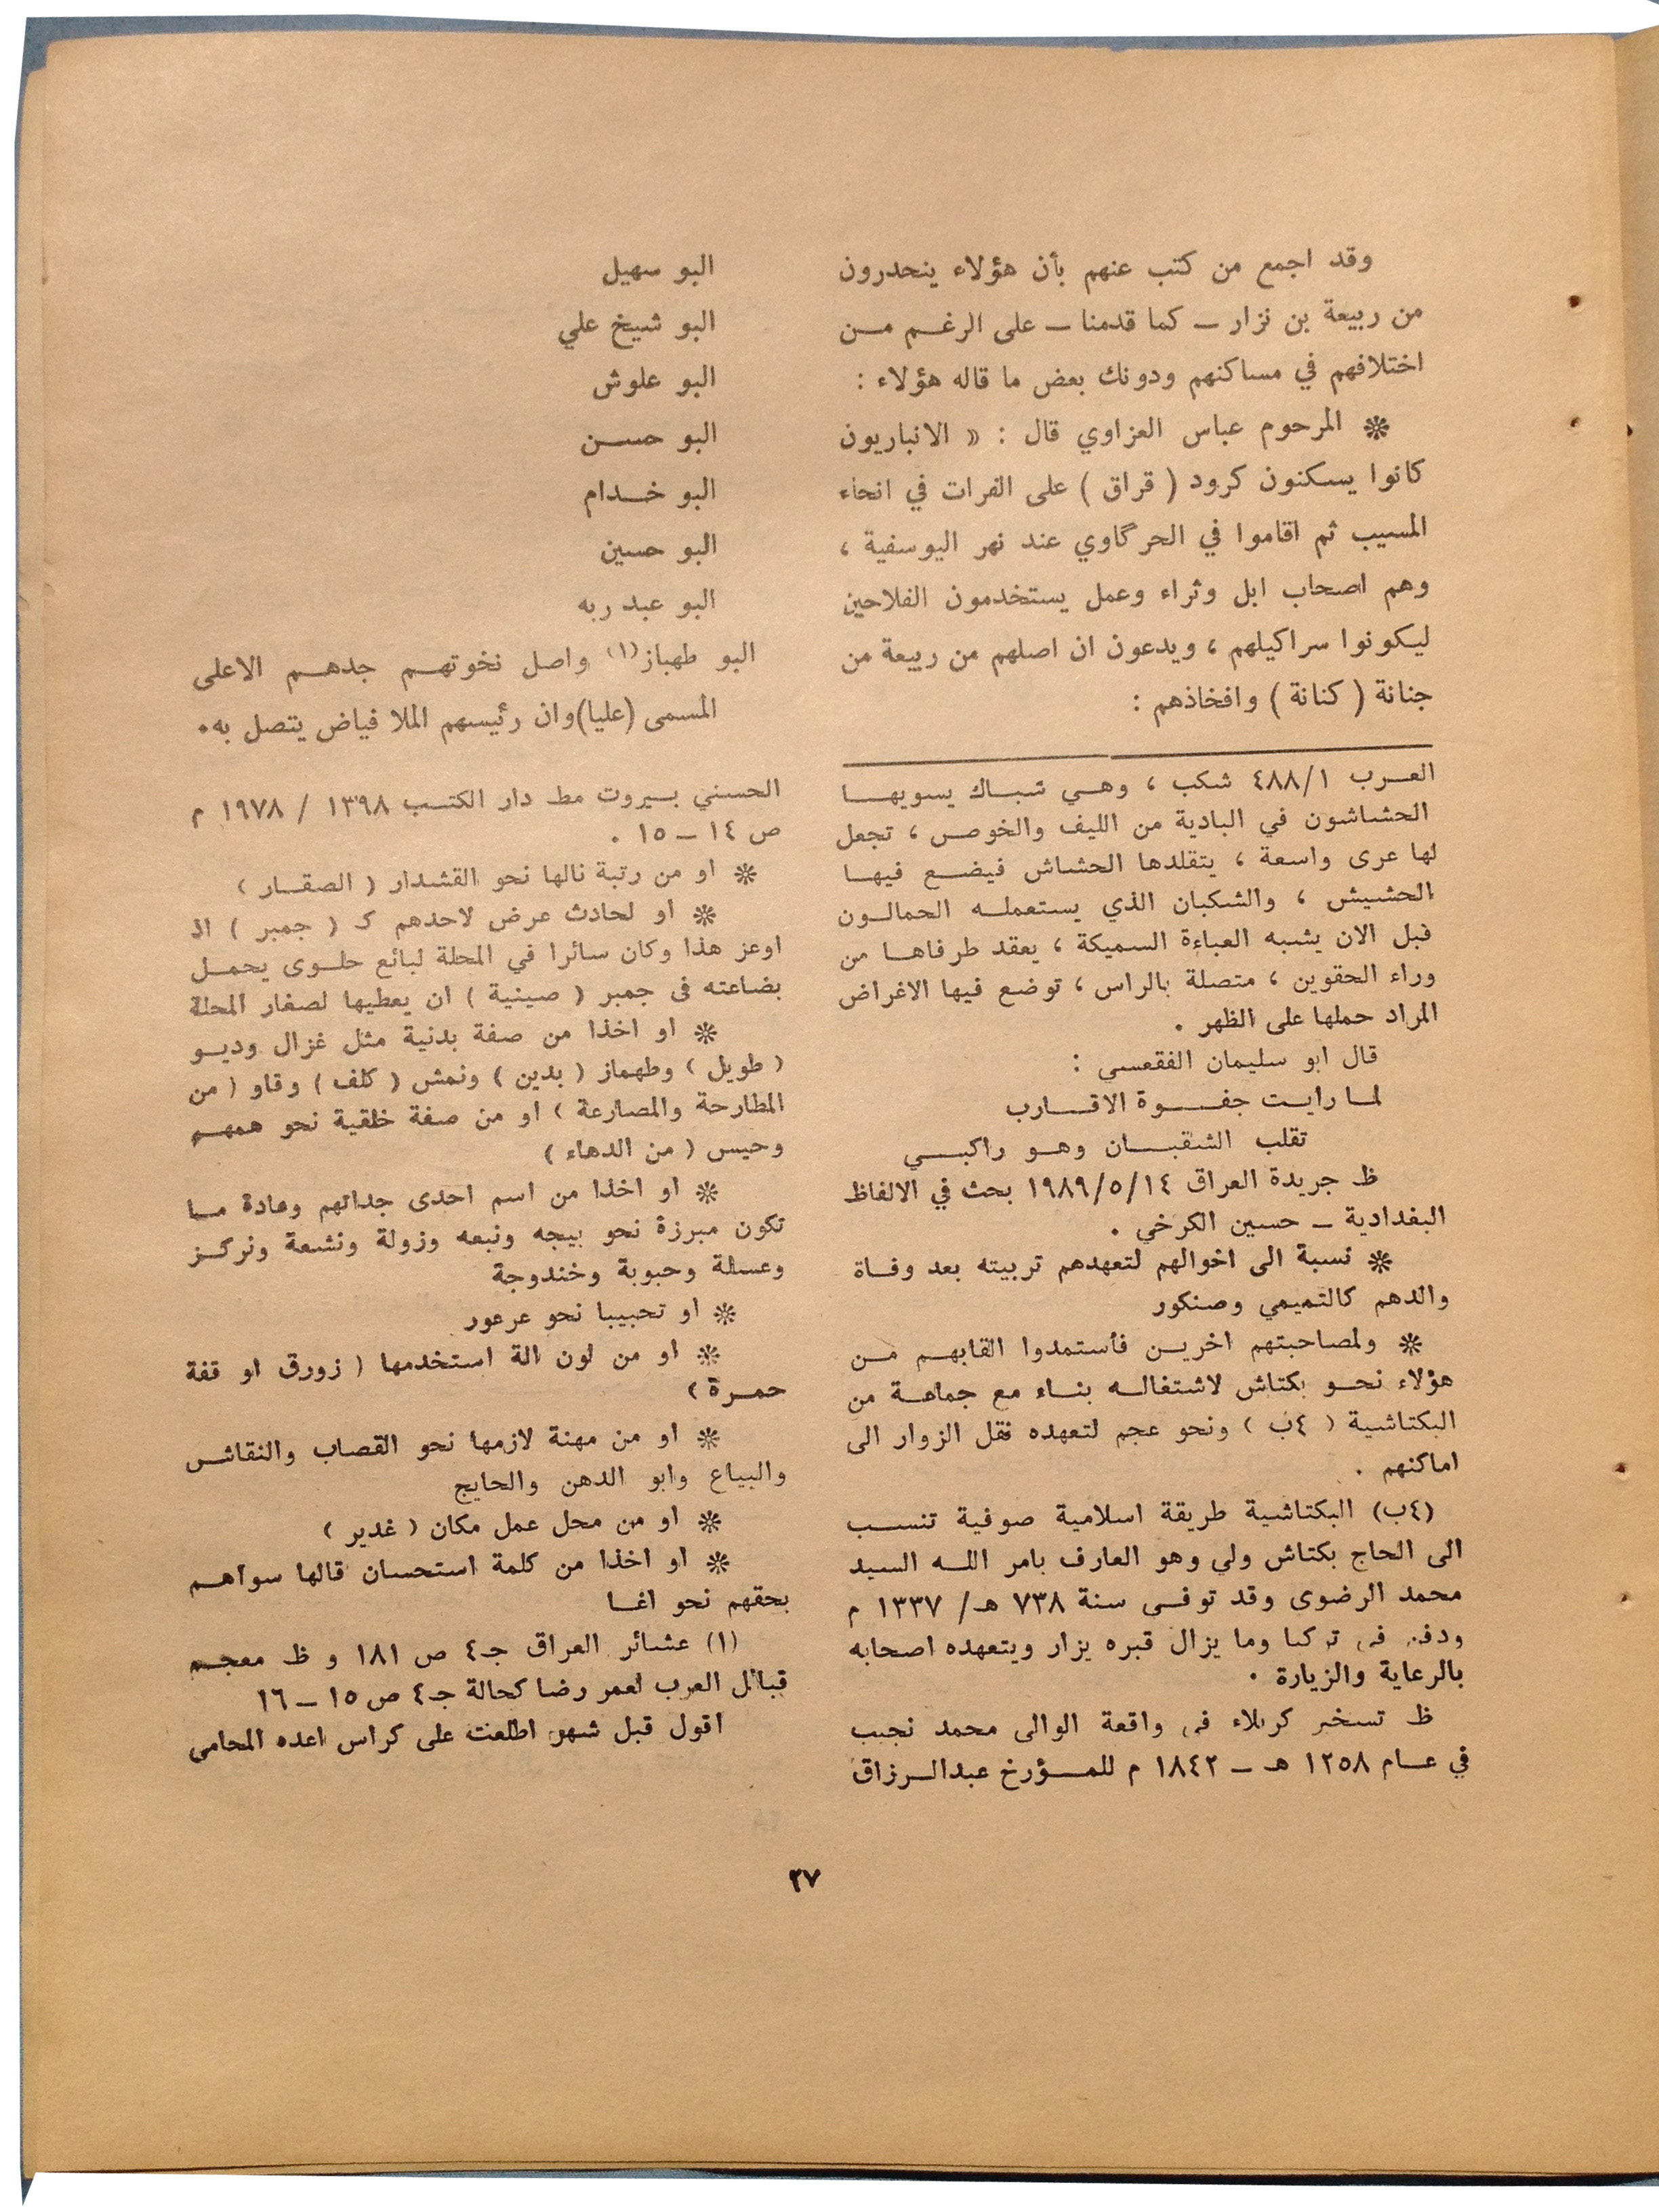 وقد اجمع من كتب عنهم بأن هؤلاء ينحدرون
من ربيعة بن نزار – كما قدمنا – على الرغم من
اختلافهم في مساكنهم ودونك بعض ما قاله هؤلاء :
* المرحوم عباس العزاوي قال : « الانباريون
كانوا يسكنون كرود ( قراق ) على الفرات في انحاء
المسيب ثم اقاموا في الحرگاوي عند نهر اليوسفية ،
وهم اصحاب ابل وثراء وعمل يستخدمون الفلاحين
ليكونوا سراكيلهم ، ويدعون ان اصلهم من ربيعة من
جنانة ( كنانة ) وافخاذهم :
البو سهيل
البو شيخ علي
البو علوش
البو حسن
البو خدام
البو حسين
البو عبد ربه
البو طهباز(١) واصل نخوتهم جدهم الاعلى
المسمى (عليا) وان رئيسهم الملا فياض يتصل به.
العرب ٤٨٨/١ شكب ، وهي شباك يسويها
الحشاشون في البادية من الليف والخوص ، تجعل
لها عرى واسعة ، يتقلدها الحشاش فيضع فيها
الحشيش ، والشكبان الذي يستعمله الحمالون
قبل الان يشبه العباءة السميكة ، يعقد طرفاها من
وراء الحقوين ، متصلة بالراس ، توضع فيها الاغراض
المراد حملها على الظهر .
قال ابو سليمان الفقعسي :
لما رايت جفوة الاقارب
تقلب الشقبان وهو راكبي
ظ جريدة العراق ١٩٨٩/٥/١٤ بحث في الالفاظ
البغدادية – حسين الكرخي .
* نسبة الى اخوالهم لتعهدهم تربيته بعد وفاة
والدهم كالتميمي وصنكور
* ولمصاحبتهم اخرين فأستمدوا القابهم من
هؤلاء نحو بكتاش لاشتغاله بناء مع جماعة من
البكتاشية ( ٤ب ) ونحو عجم لتعهده نقل الزوار الى
اماكنهم .
(٤ب) البكتاشية طريقة اسلامية صوفية تنسب
الى الحاج بكتاش ولي وهو العارف بامر الله السيد
محمد الرضوى وقد توفى سنة ٧٣٨ هـ/ ١٣٣٧ م
ودفن فى تركيا وما يزال قبره يزار ويتعهده اصحابه
بالرعاية والزيارة .
ظ تسخير كربلاء فى واقعة الوالى محمد نجيب
في عام ١٢٥٨ هـ – ١٨٤٢ م للمؤرخ عبدالرزاق
الحسني بيروت مط دار الكتب ١٣٩٨ / ١٩٧٨ م
ص ١٤ – ١٥ .
* او من رتبة نالها نحو القشدار ( الصقار )
* او لحادث عرض لاحدهم كـ ( جمبر ) اذ
اوعز هذا وكان سائرا في المحلة لبائع حلوى يحمل
بضاعته فى جمبر ( صينية ) ان يعطيها لصغار المحلة
* او اخذا من صفة بدنية مثل غزال وديو
( طويل ) وطهماز ( بدين ) ونمش ( كلف ) وقاو ( من
المطارحة والمصارعة ) او من صفة خلقية نحو همهم
وحيس ( من الدهاء )
* او اخذا من اسم احدى جداتهم وعادة ما
تكون مبرزة نحو بيجه ونبعه وزولة ونشعة ونركز
وعسلة وحبوبة وخندوجة
* او تحبيبا نحو عرعور
* او من لون الة استخدمها ( زورق او قفة
حمرة )
* او من مهنة لازمها نحو القصاب والنقاش
والبياع وابو الدهن والحايج
* او من محل عمل مكان ( غدير )
* او اخذا من كلمة استحسان قالها سواهم
بحقهم نحو اغا
(١) عشائر العراق جـ٤ ص ١٨١ و ظ معجم
قبائل العرب لعمر رضا كحالة جـ٤ ص ١٥ – ١٦
اقول قبل شهر اطلعت على كراس اعده المحامى
٣٧